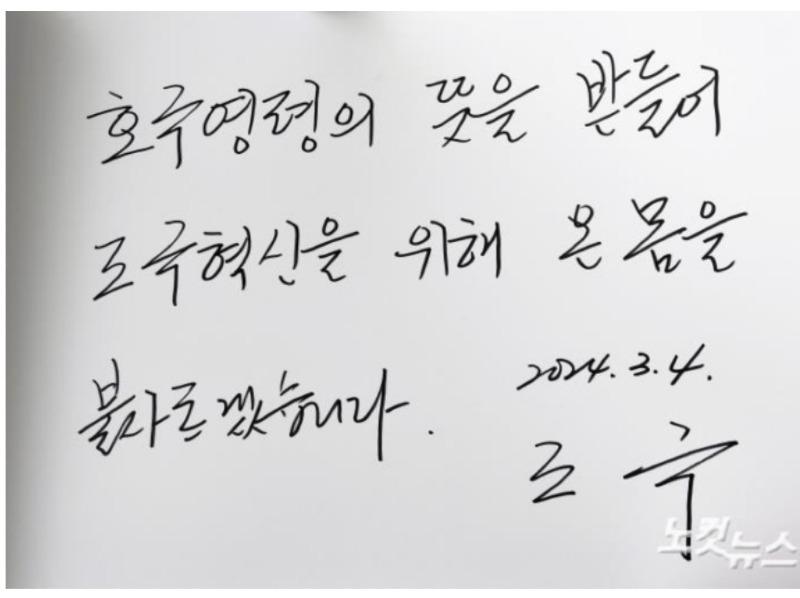 호국영령의 뜻을 받들어
조국혁신을 위해 온 몸을
불사르겠습니다.
2024.3.4.
조 국
노컷뉴스